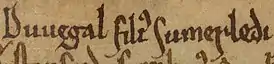 Dunegal filı᷒ Sumerledi